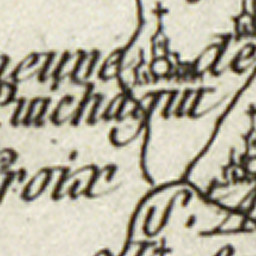 neuve de
Puichagut
Croix
S. A